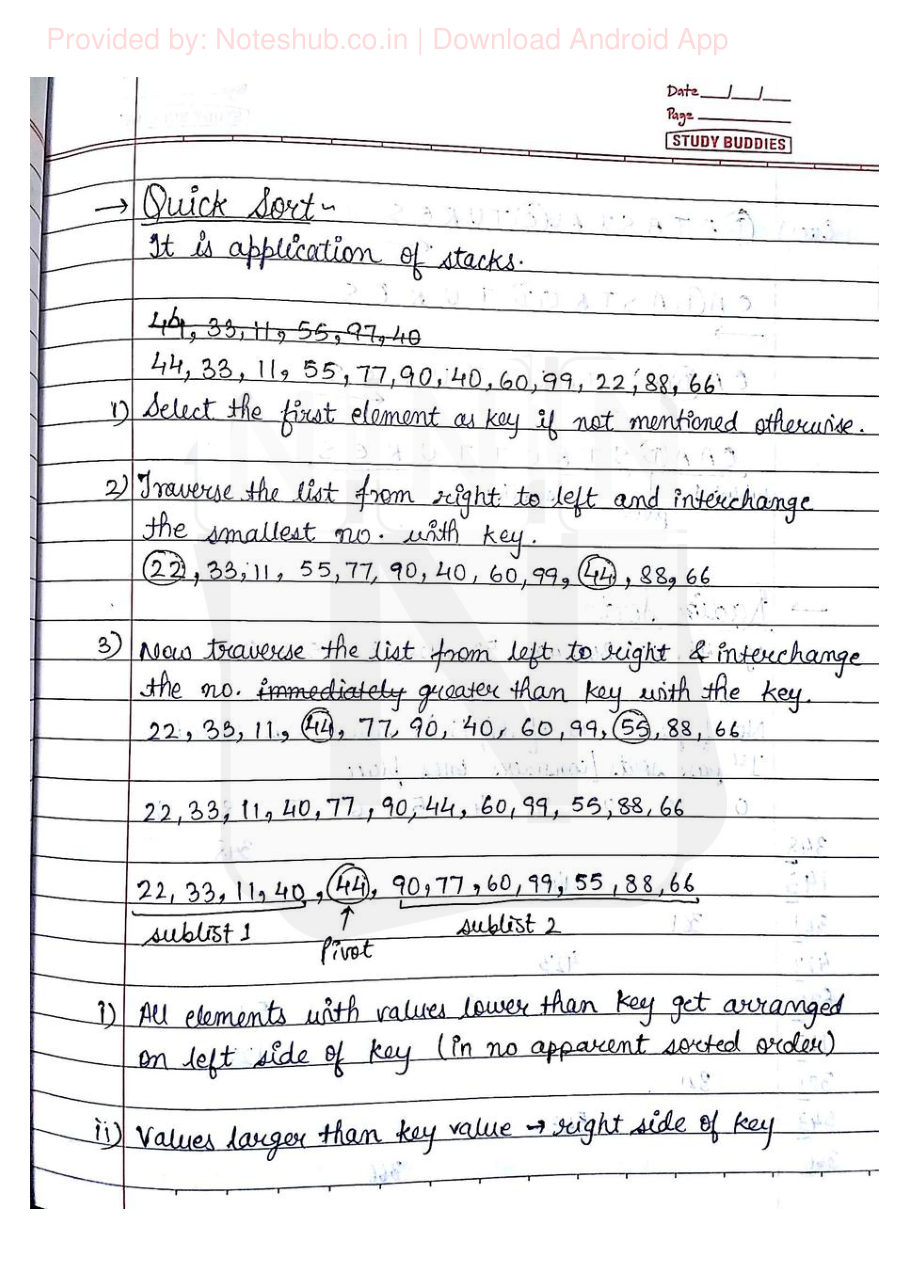 Provided by: Noteshub.co.in | Download Android App
Date __/__/__
Page
STUDY BUDDIES
→ Quick Sort ~
It is application of stacks.
44, 33, 11, 55, 97, 40
44, 33, 11, 55, 77, 90, 40, 60, 99, 22, 88, 66
1) Select the first element as key if not mentioned otherwise.
2) Traverse the list from right to left and interchange
the smallest no. with key.
22, 33, 11, 55, 77, 90, 40, 60, 99, 44, 88, 66
3) Now traverse the list from left to right & interchange
the no. immediately greater than key with the key.
22, 33, 11, 44, 77, 90, 40, 60, 99, 55, 88, 66
22, 33, 11, 40, 77, 90, 44, 60, 99, 55, 88, 66
22, 33, 11, 40, 44, 90, 77, 60, 99, 55, 88, 66
sublist 1 ↑ sublist 2
Pivot
i) All elements with values lower than key get arranged
on left side of key (in no apparent sorted order)
ii) Values larger than key value → right side of key